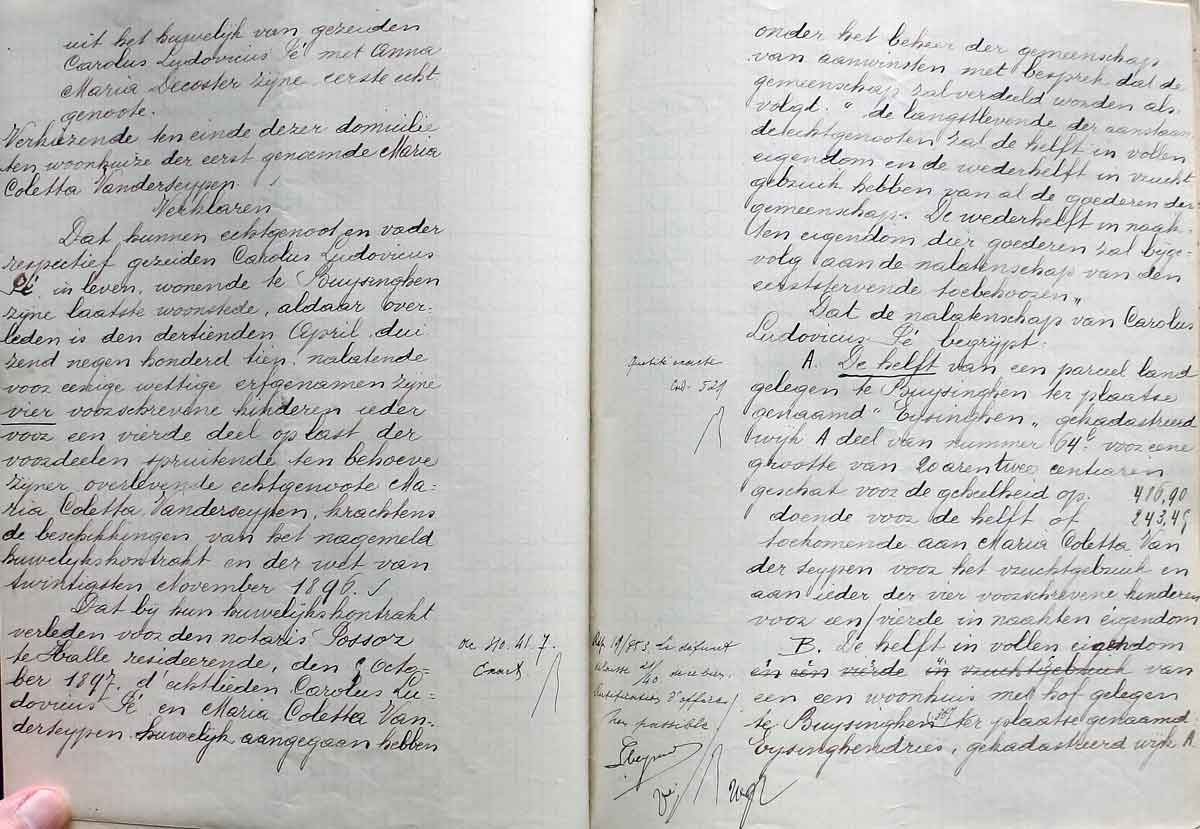 uit het huwelijk van gezeiden
Carolus Ludovicus Pé met Anna
Maria Decoster zijne eerste echt
genoote.
Verkiezende ten einde dezer domicilie
ten woonhuize der eerst genoemde Maria
Coletta Vanderseypen
Verklaren
Dat hunnen echtgenoot en vader
respectief gezeiden Carolus Ludovicus
Pé in leven, wonende te Buysinghen
zijne laatste woonstede, aldaar over-
leden is den dertienden April dui
zend negen honderd tien, nalatende
voor eenige wettige erfgenamen zijne
vier voorschrevene kinderen ieder
voor een vierde deel op last der
voordeelen spruitende ten behoeve
zijner overlevende echtgenoote Ma=
ria Coletta Vanderseypen, krachtens
de beschikkingen van het nagemeld
huwelijkskontrakt en der wet van
twintigsten November 1896.
Dat bij hun huwelijkskontrakt
verleden voor den notaris Possoz
te Halle resideerende, den 9 Octo-
ber 1897. d'echtlieden Carolus Lu=
dovicus Pé en Maria Coletta Van-
derseypen huwelijk aangegaan hebben
No. 41. 7.
Exact
onder het beheer der gemeenschap
van aanwinsten met besprek dat de
gemeenschap zal verduld worden als
volgt. " de langstlevende der aanstaan
de echtgenooten zal de helft in vollen
eigendom en de wederhelft in vrucht
gebruik hebben van al de goederen der
gemeenschap. De wederhelft in naak-
ten eigendom dier goederen zal bijge-
volg aan de nalatenschap van den
eerststervende toebehooren "
Dat de nalatenschap van Carolus
Ludovicus Pé begrijpt.
A. De helft van een parceel land
gelegen te Buysinghen ter plaatse
genaamd " Eysinghen " gekadastreerd
wijk A deel van nummer 64 voor eene
grootte van 20 aren twee centiaren
geschat voor de geheelheid op. 486,90
doende voor de helft of 243,45
toekomende aan Maria Coletta Van
der seypen voor het vruchtgebruik en
aan ieder der vier voorschrevene kinderen
voor een/vierde in naakten eigendom
B. De helft in vollen eigendom
en een vierde in vruchtgebruik van
een een woonhuis met hof gelegen
te Buysinghen ter plaatse genaamd
Eysinghendries, gekadastreerd wijk A
529
Le défunt
possible